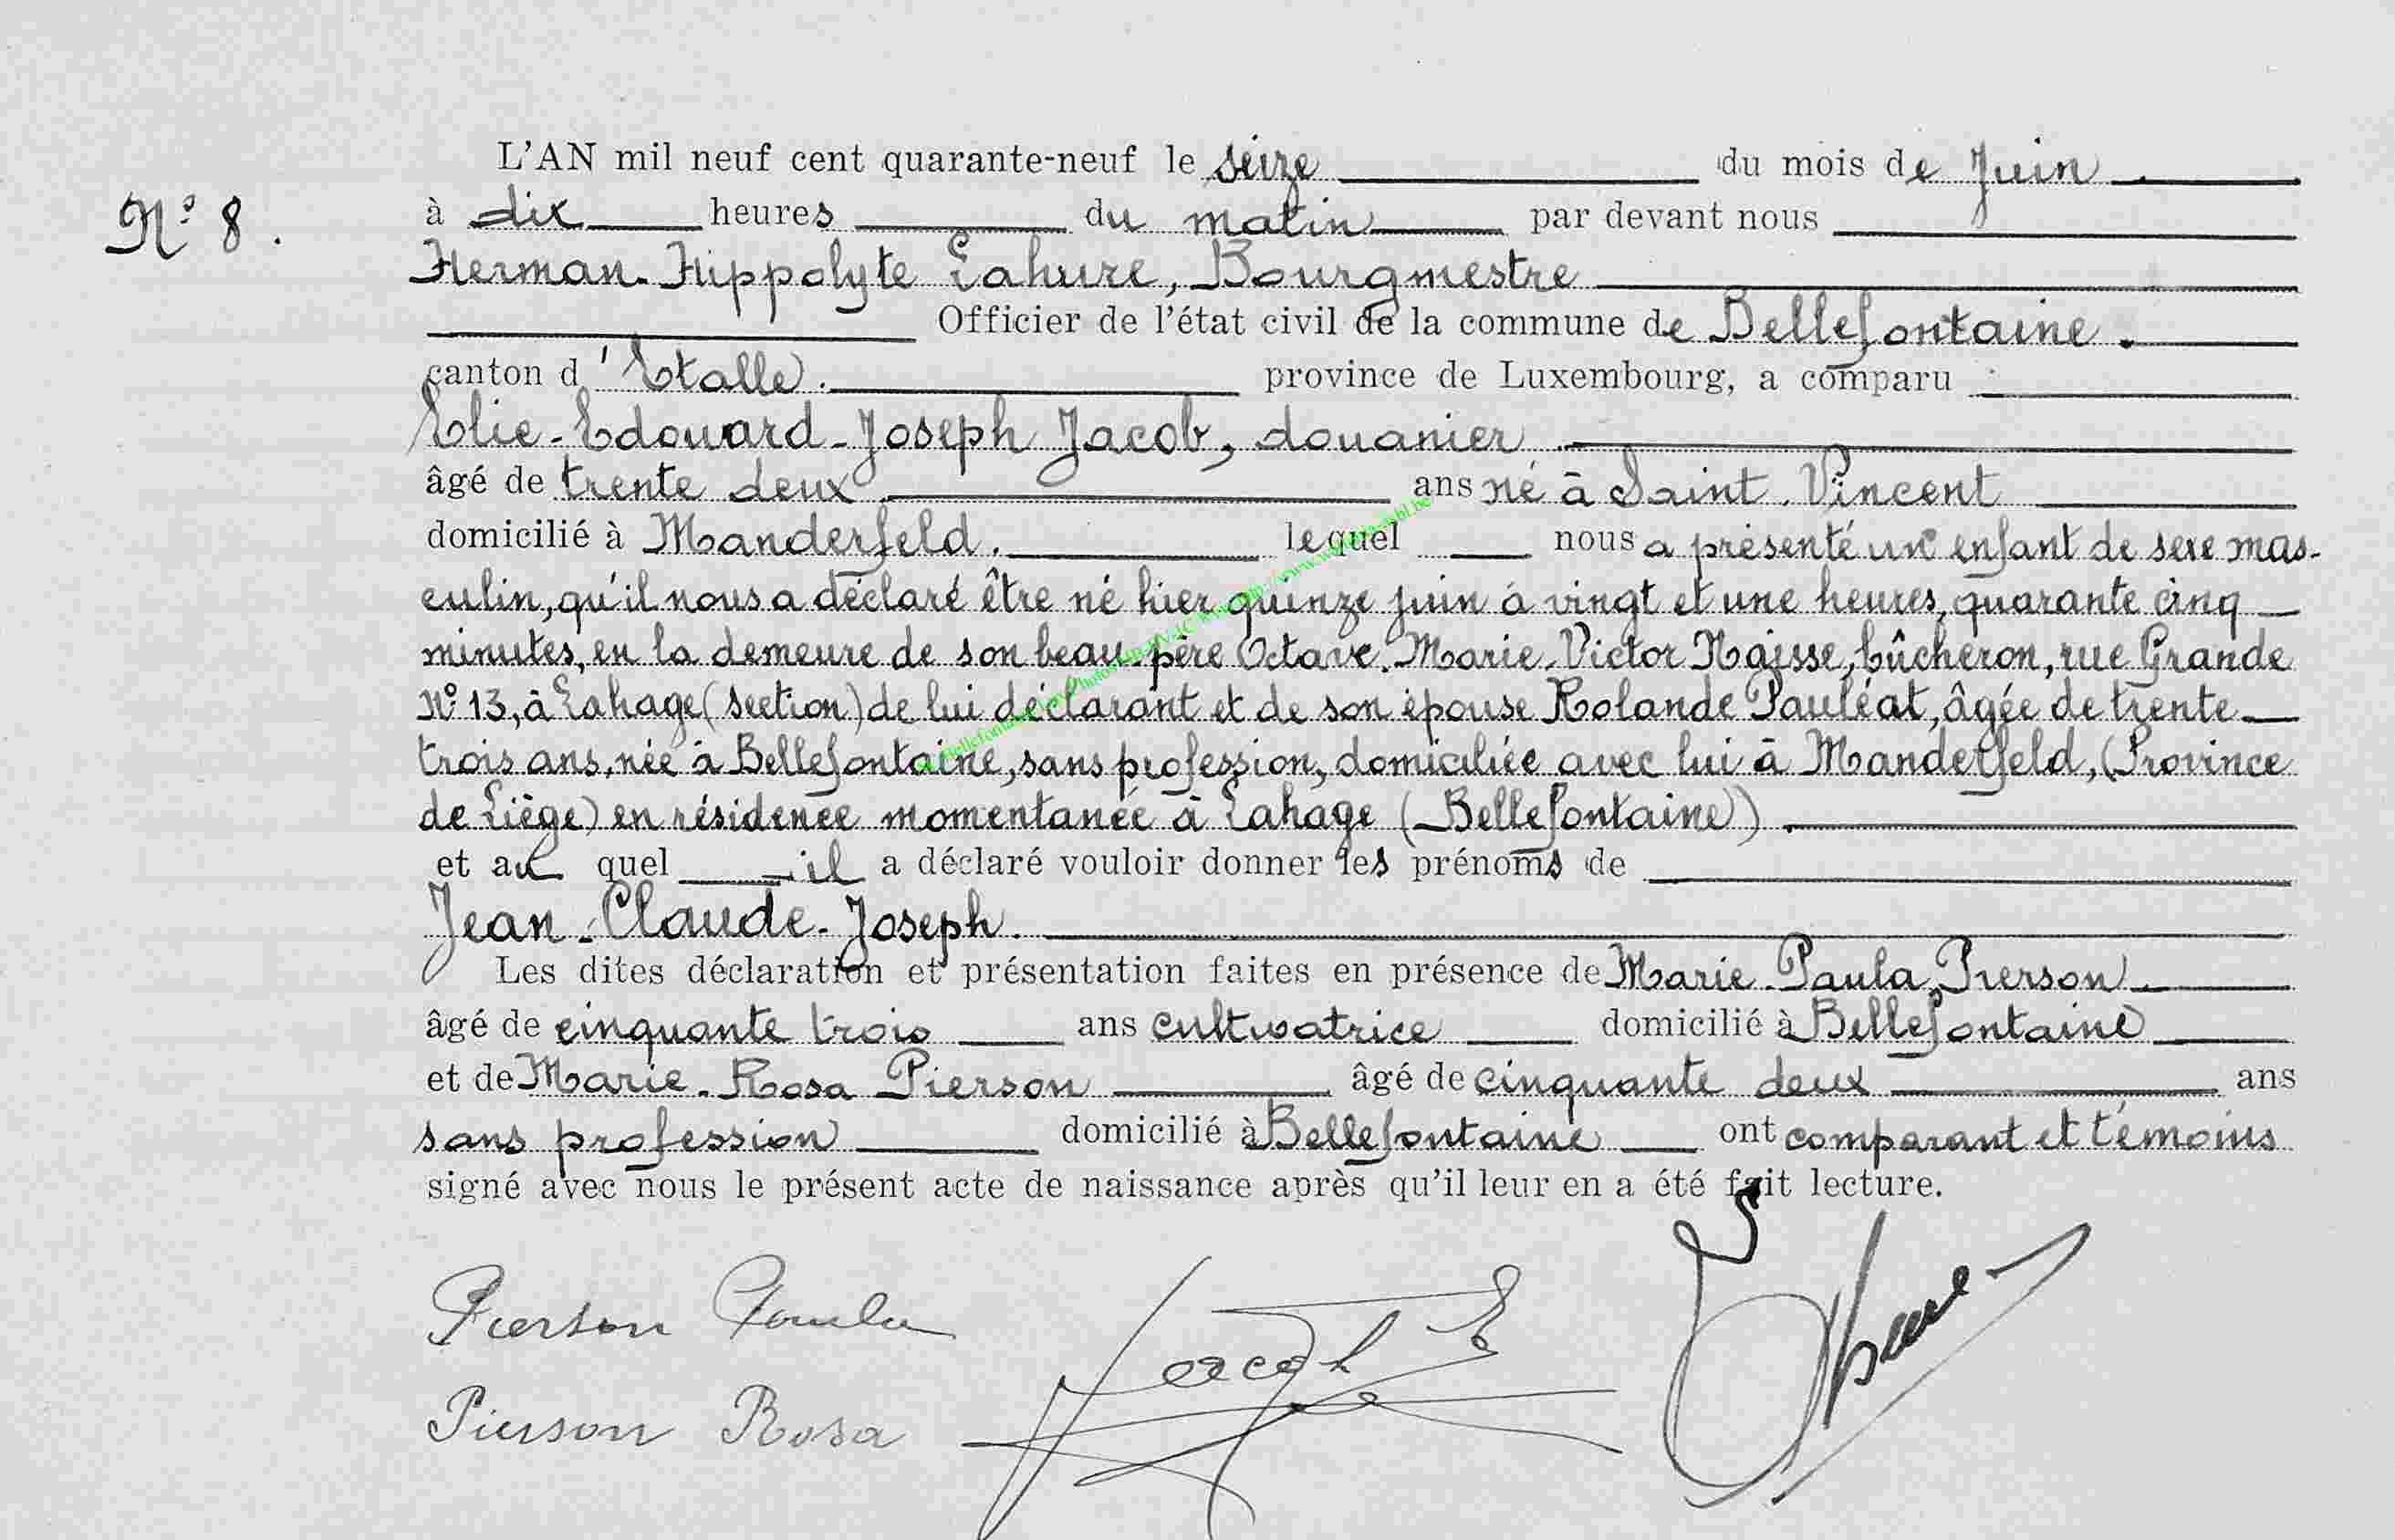 L'AN mil neuf cent quarante-neuf le seize du mois de Juin
N° 8. à dix heures du matin par devant nous
Herman-Hippolyte Lahure, Bourgmestre
Officier de l'état civil de la commune de Bellefontaine.
canton d'Etalle. province de Luxembourg, a comparu
Elie-Edouard-Joseph Jacob, douanier
âgé de trente deux ans né à Saint-Vincent
domicilié à Manderfeld. lequel nous a présenté un enfant de sexe mas-
culin, qu'il nous a déclaré être né hier quinze juin à vingt et une heures, quarante cinq
minutes, en la demeure de son beau-père Octave-Marie-Victor Maisse, bûcheron, rue Grande
N° 13, à Lahage (section) de lui déclarant et de son épouse Rolande Pauléat, âgée de trente
trois ans, née à Bellefontaine, sans profession, domiciliée avec lui à Manderfeld, (Province
de Liège) en résidence momentanée à Lahage (Bellefontaine)
et au quel il a déclaré vouloir donner les prénoms de
Jean-Claude-Joseph.
Les dites déclaration et présentation faites en présence de Marie-Paula Pierson
âgé de cinquante trois ans cultivatrice domicilié à Bellefontaine
et de Marie-Rosa Pierson âgé de cinquante deux ans
sans profession domicilié à Bellefontaine ont comparant et témoins
signé avec nous le présent acte de naissance après qu'il leur en a été fait lecture.
Pierson Paula
Jacob E
Lahure
Pierson Rosa